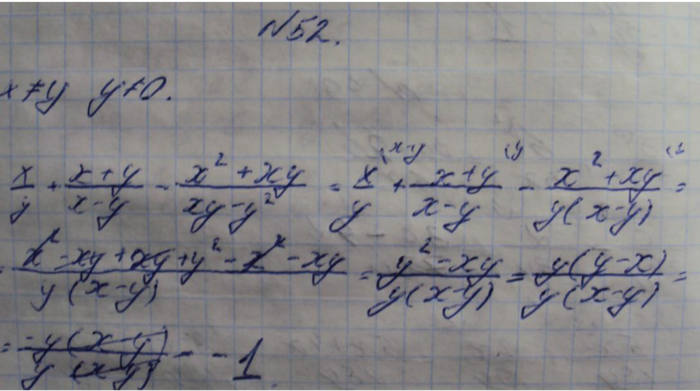 №52.
x≠y y≠0.
x/y + (x+y)/(x-y) - (x²+xy)/(xy-y²) = x/y (x-y + (x+y)/(x-y) (y - (x²+xy)/(y(x-y)) (1 =
= (x²-xy+xy+y²-x²-xy)/(y(x-y)) = (y²-xy)/(y(x-y)) = (y(y-x))/(y(x-y)) =
= (-y(x-y))/(y(x-y)) = -1